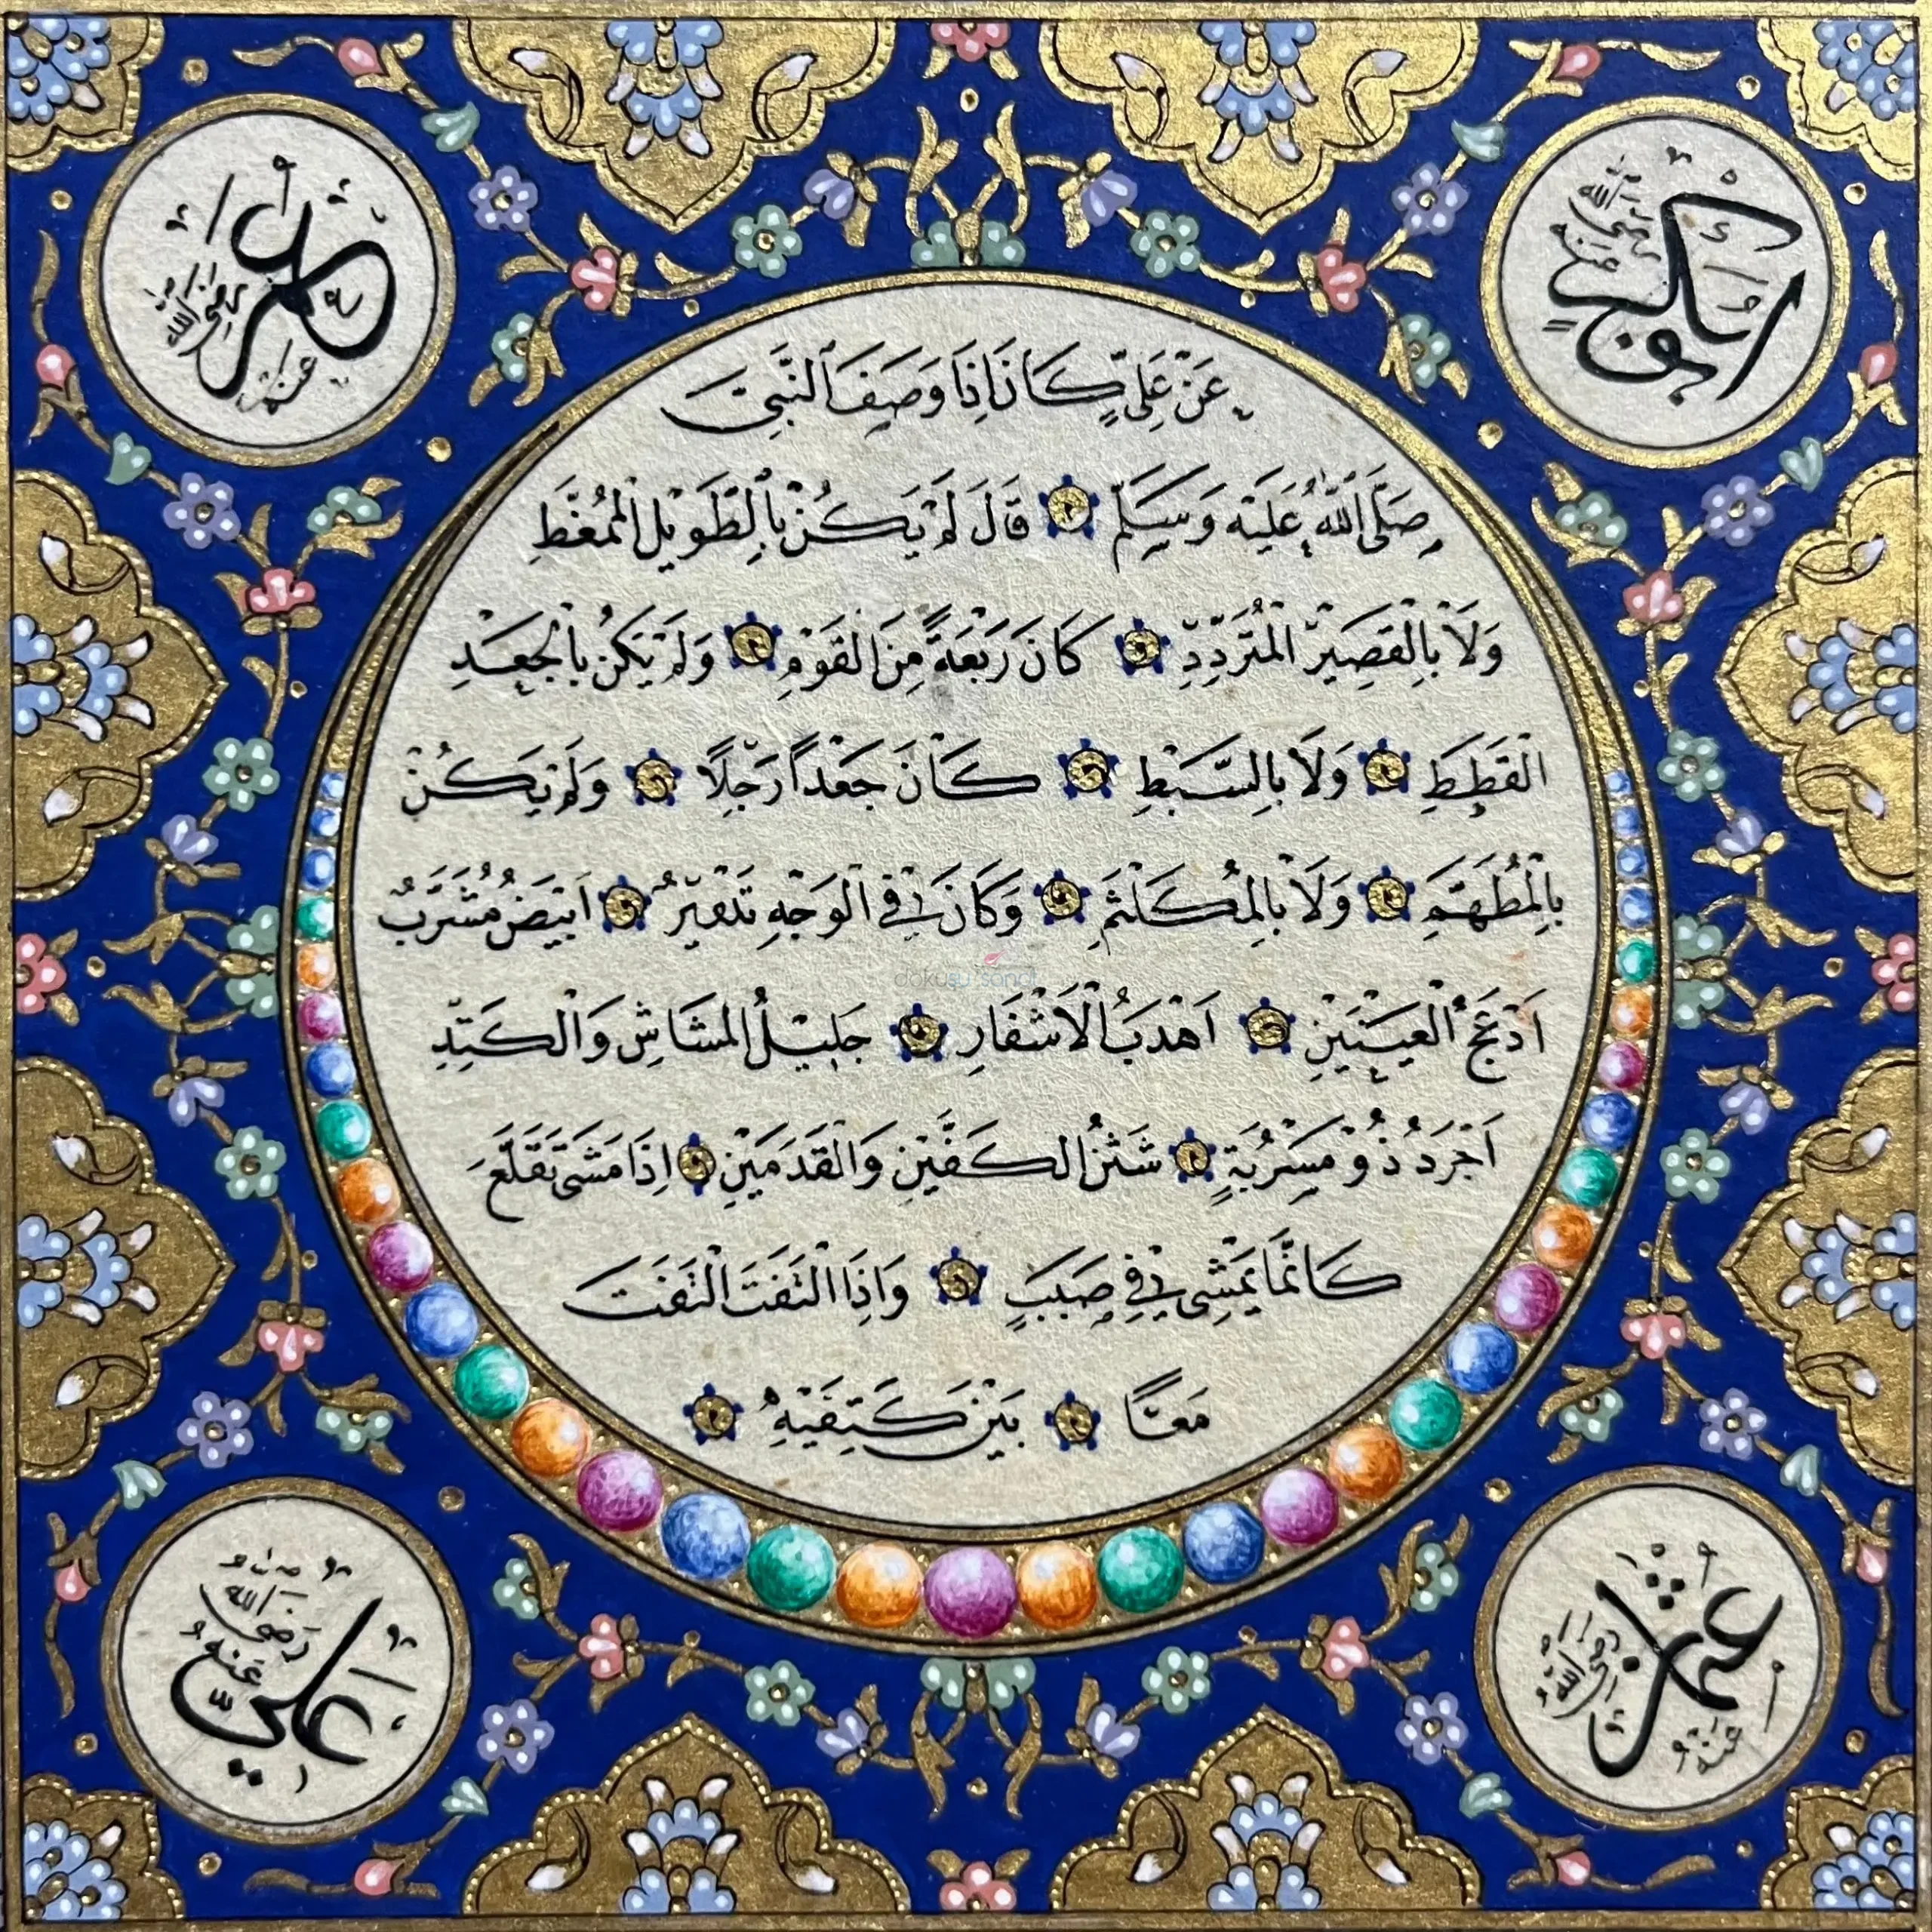 ابوبكر رضى الله عنه
عمر رضى الله عنه
عَنْ عَلِيٍّ كَانَ اِذَا وَصَفَ النَّبِيَّ
صَلَّى اللهُ عَلَيْهِ وَسَلَّمَ قَالَ لَمْ يَكُنْ بِالطَّوِيلِ الْمُمَّغَطِ
وَلَا بِالْقَصِيرِ الْمُتَرَدِّدِ كَانَ رَبْعَةً مِنَ الْقَوْمِ وَلَمْ يَكُنْ بِالْجَعْدِ
الْقَطَطِ وَلَا بِالسَّبْطِ كَانَ جَعْداً رَجِلًا وَلَمْ يَكُنْ
بِالْمُطَهَّمِ وَلَا بِالْمُكَلْثَمِ وَكَانَ فِي الْوَجْهِ تَدْوِيرٌ اَبْيَضُ مُشْرَبٌ
اَدْعَجُ الْعَيْنَيْنِ اَهْدَبُ الْاَشْفَارِ جَلِيلُ الْمُشَاشِ وَالْكَتَدِ
اَجْرَدُ ذُو مَسْرُبَةٍ شَثْنُ الْكَفَّيْنِ وَالْقَدَمَيْنِ اِذَا مَشَى تَقَلَّعَ
كَاَنَّمَا يَمْشِي فِي صَبَبٍ وَاِذَا الْتَفَتَ الْتَفَتَ
مَعًا بَيْنَ كَتِفَيْهِ
عثمان رضى الله عنه
علي رضى الله عنه
dokusu sanat